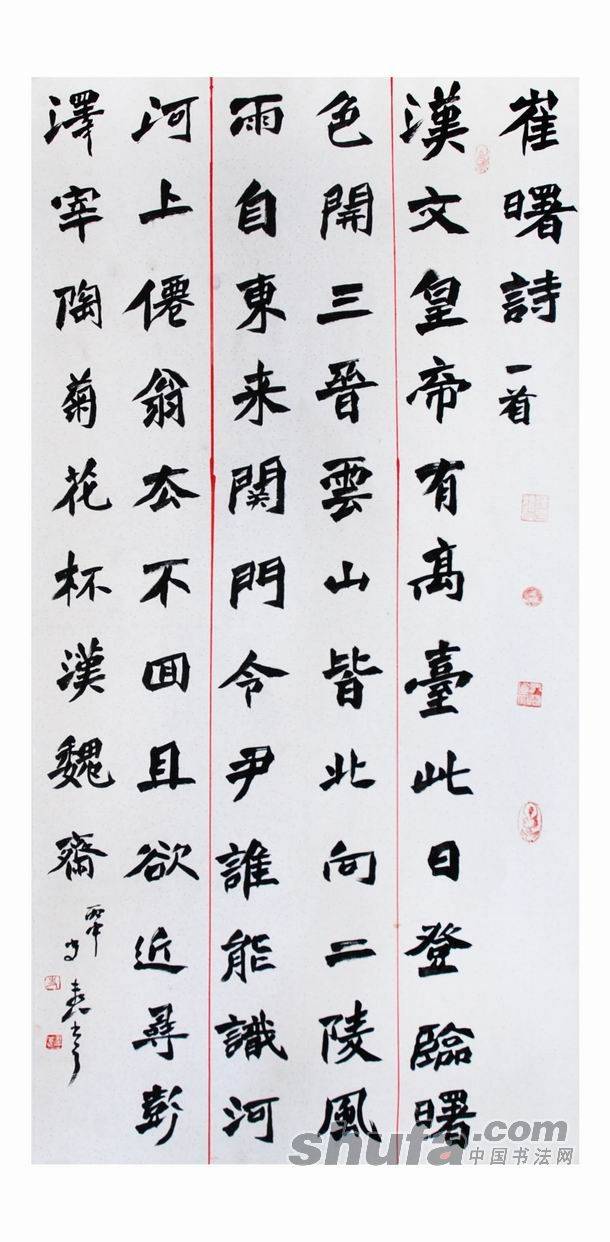 崔曙詩一首
漢文皇帝有高臺此日登臨曙
色開三晉雲山皆北向二陵風
雨自東来関門令尹誰能識河
河上僊翁厺不回且欲近尋彭
澤宰陶菊花杯漢魏齋
shufa.com
中国书法网